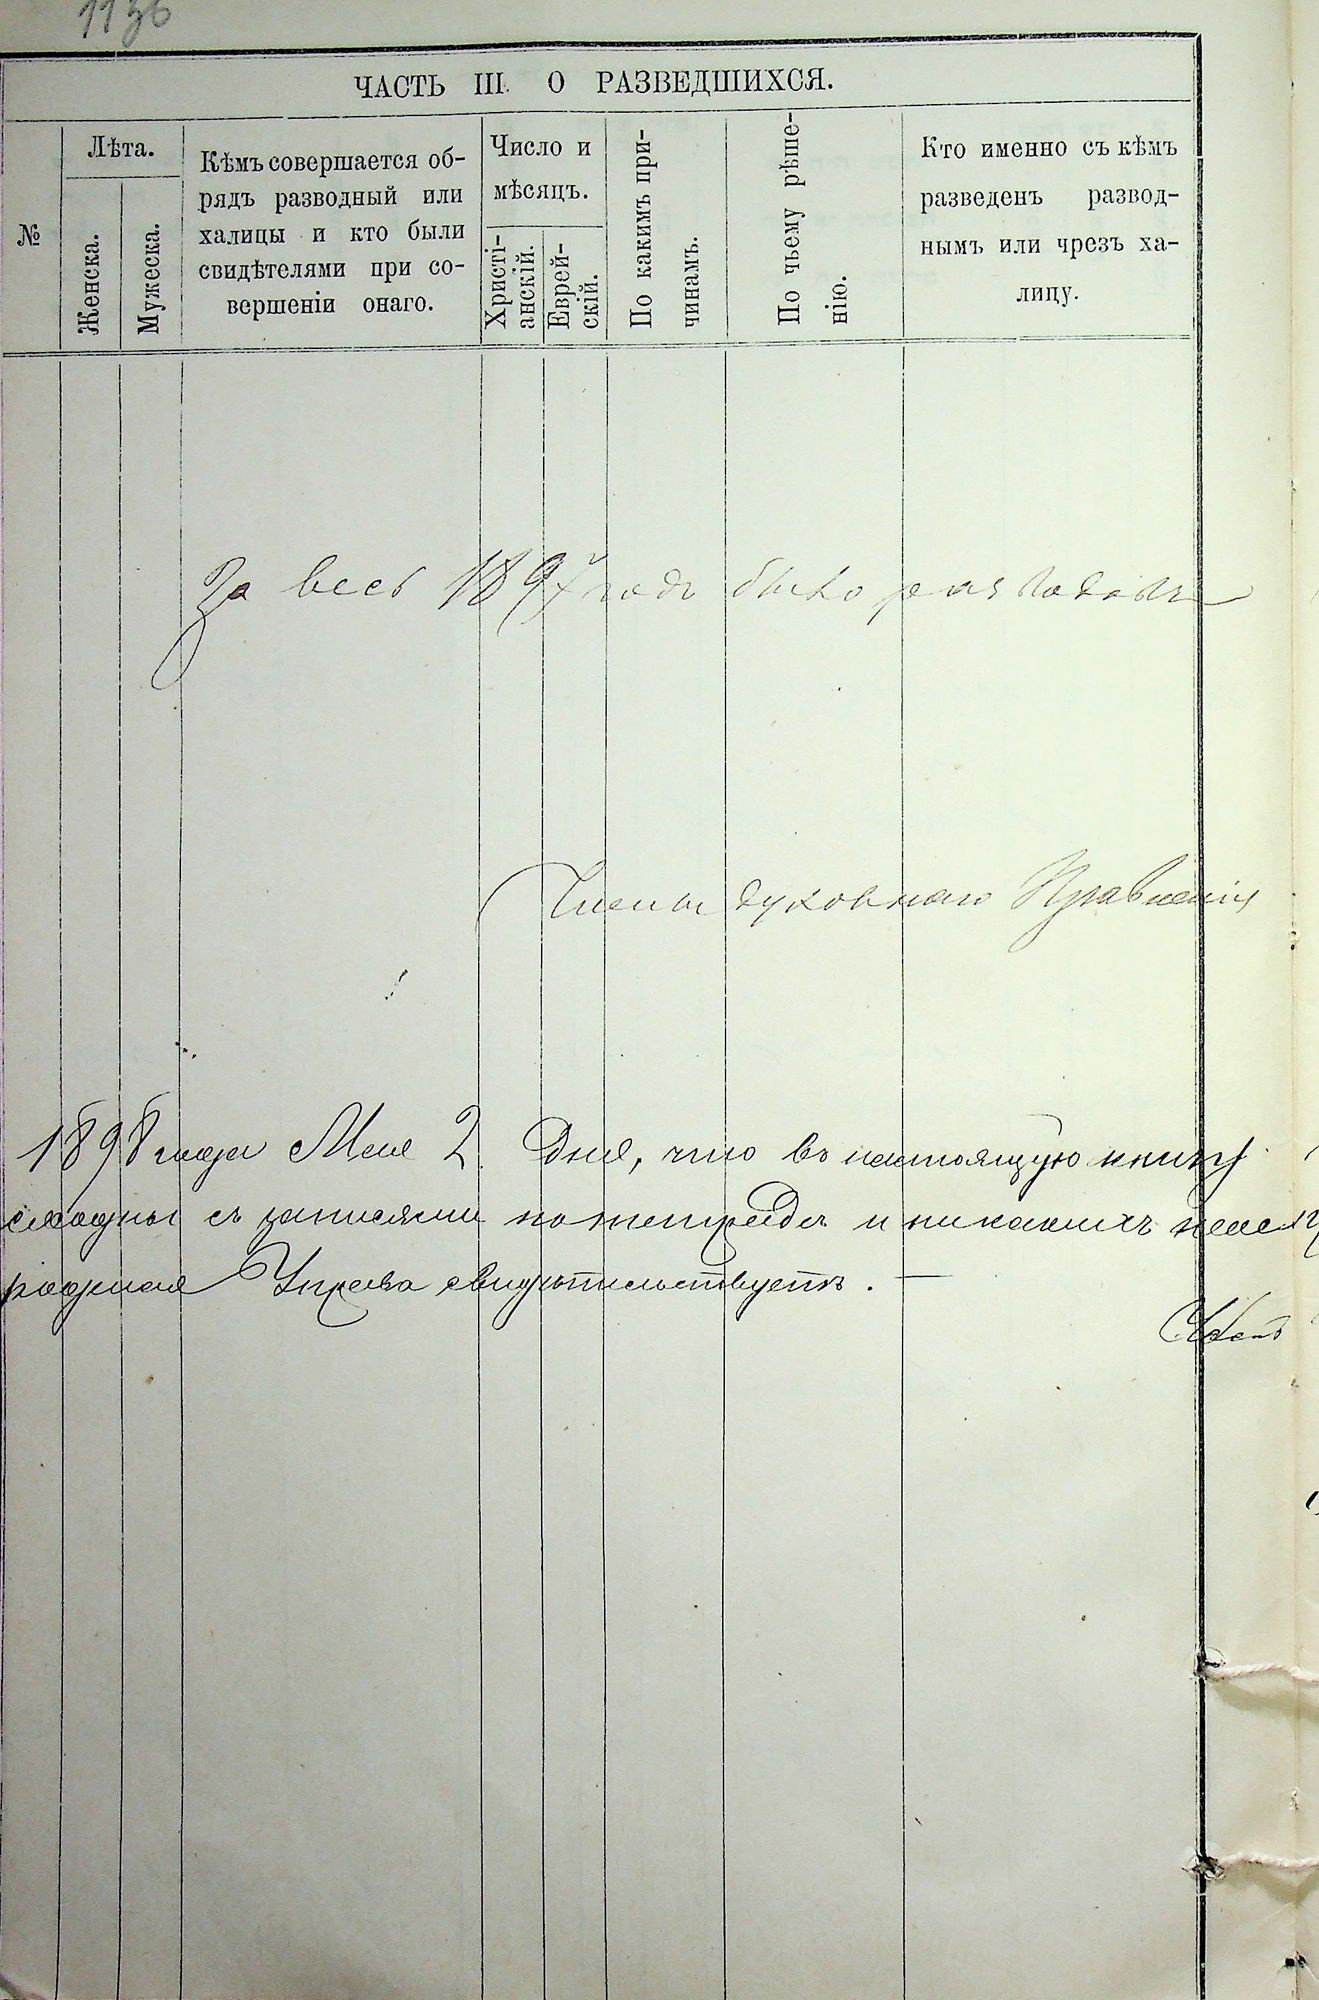 1136
ЧАСТЬ III. О РАЗВЕДШИХСЯ.
№
Лѣта.
Женска.
Мужеска.
Кѣмъ совершается об-
рядъ разводный или
халицы и кто были
свидѣтелями при со-
вершеніи онаго.
Число и
мѣсяцъ.
Христі-
анскій.
Еврей-
скій.
По какимъ при-
чинамъ.
По чьему рѣше-
нію.
Кто именно съ кѣмъ
разведенъ развод-
нымъ или чрезъ ха-
лицу.
За весь 1897 годъ было разводовъ
Члены духовнаго Правленія
1898 года Мая 2 Дня, что въ настоящую книгу
сходны съ записями и никакихъ
родская Управа свидѣтельствуетъ. —
Членъ